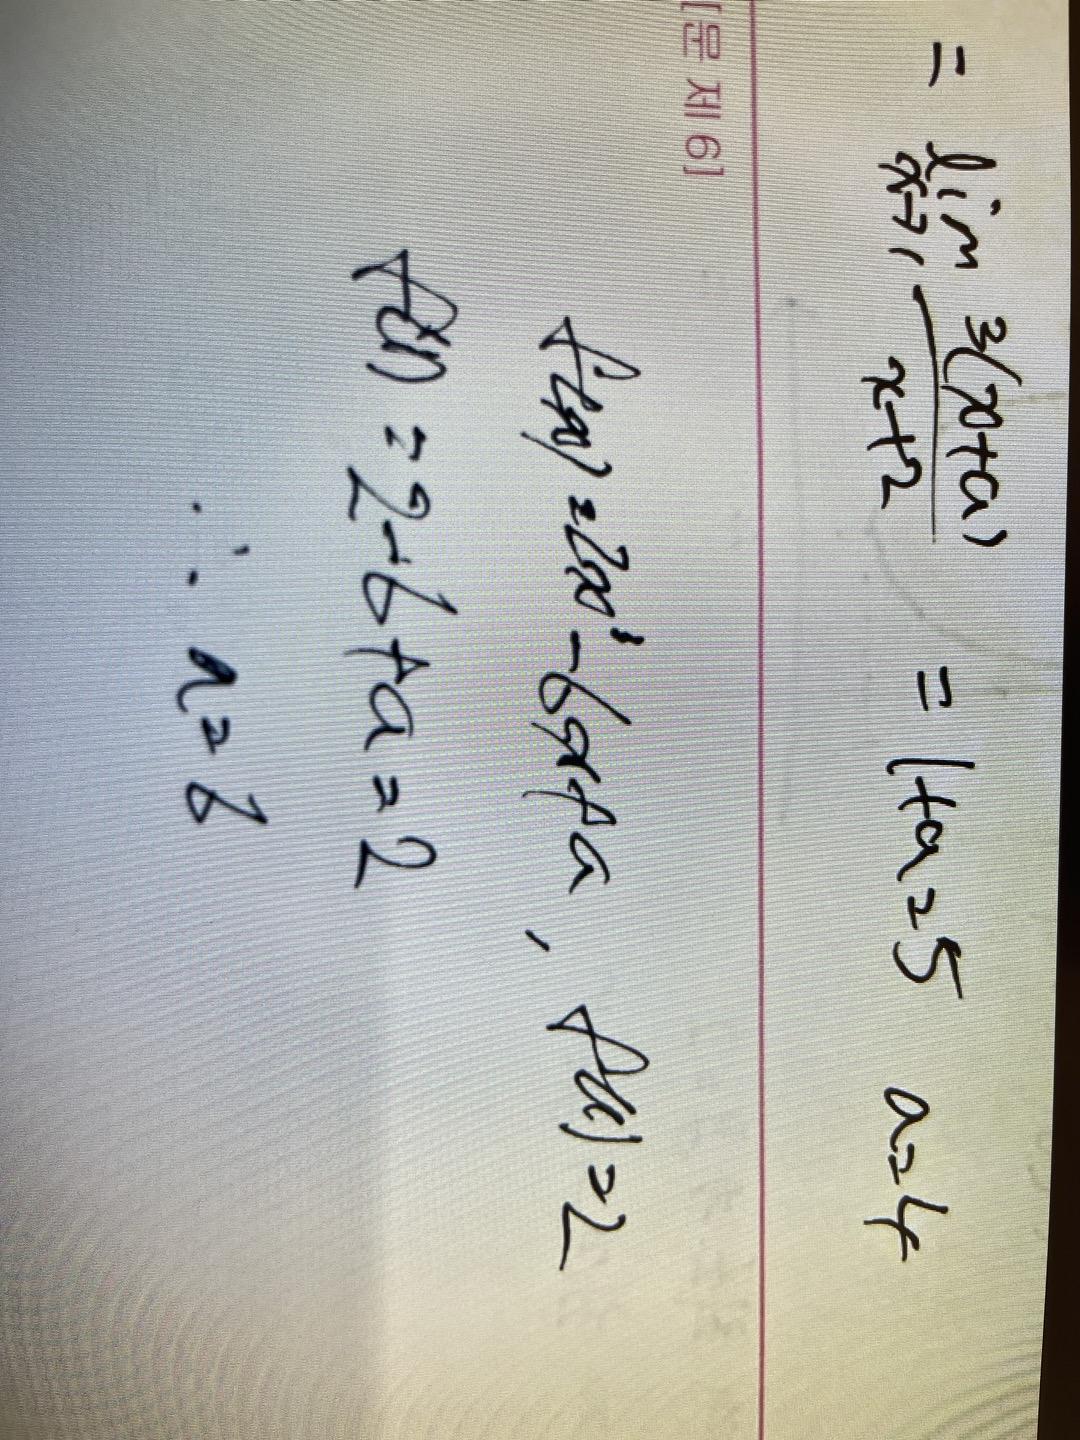 = lim x→1 3(x+a) / x+2 = 1+a=5 a=4
[문제 6]
f(x)=2x³-6x+a, f(1)=2
f(1)=2-6+a=2
∴ a=6